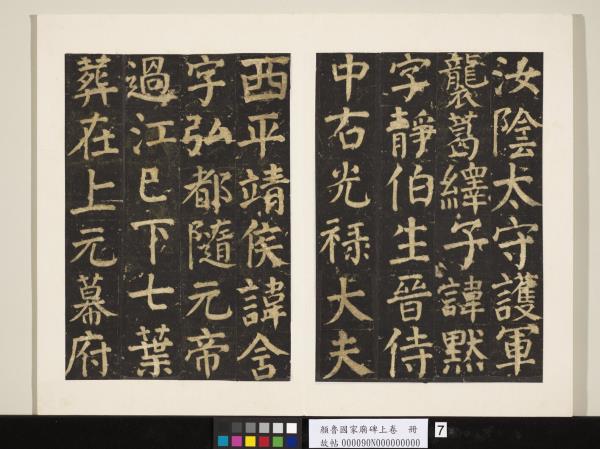 汝陰太守護軍
襲葛繹子諱黙
字靜伯生晉侍
中右光祿大夫
西平靖侯諱含
字弘都隨元帝
過江已下七葉
葬在上元幕府
顏魯國家廟碑上卷 冊
故帖 000090N000000000
7